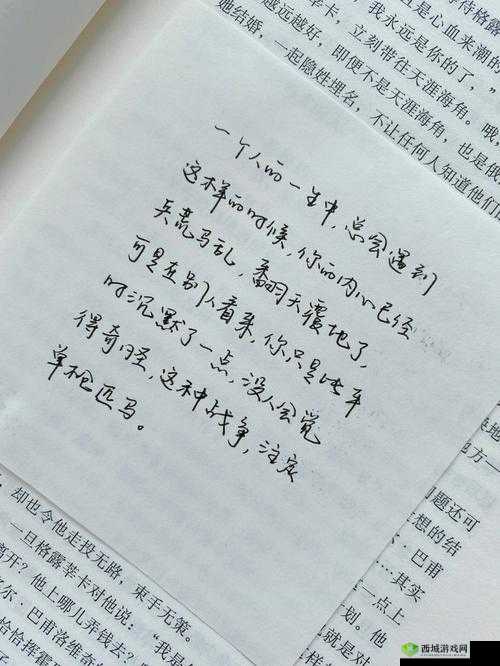 是心血来潮的
我永远是你的了，”
莘卡，立刻带往天涯海角。哦，
越远越好，即便不是天涯海角，也是俄
她结婚，一起隐姓埋名，不让任何人知道他们
一个人的一生中，总会遇到
这样的时候，你的内心已经
兵荒马乱，翻天覆地了，
可是在别人看来，你只是比平
时沉默了一点，没人会觉
得奇怪，这种战争，注定
单枪匹马。
地方一
问题还可
想的结
·巴甫
…其实
一点上
划。他
就是对
却也令他走投无路，束手无策。
一旦格露莘卡对他说：“我是
离开？他上哪儿弄钱去？
尔·巴甫洛维奇
恰恰挥霍
西城游戏网